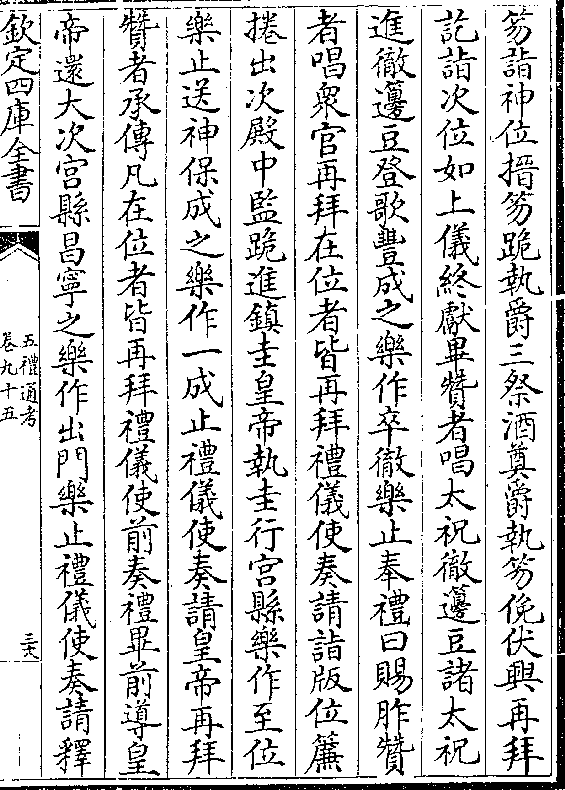 笏詣神位搢笏跪執爵三祭酒奠爵執笏俛伏興再拜
訖詣次位如上儀終獻畢贊者唱太祝徹籩豆諸太祝
進徹籩豆登歌豐成之樂作卒徹樂止奉禮曰賜胙贊
者唱衆官再拜在位者皆再拜禮儀使奏請詣版位簾
捲出次殿中監跪進鎮圭皇帝執圭行宮縣樂作至位
樂止送神保成之樂作一成止禮儀使奏請皇帝再拜
贊者承傳凡在位者皆再拜禮儀使前奏禮畢前導皇
帝還大次宮縣昌寧之樂作出門樂止禮儀使奏請釋
欽定四庫全書
五禮通考
卷九十五
三六